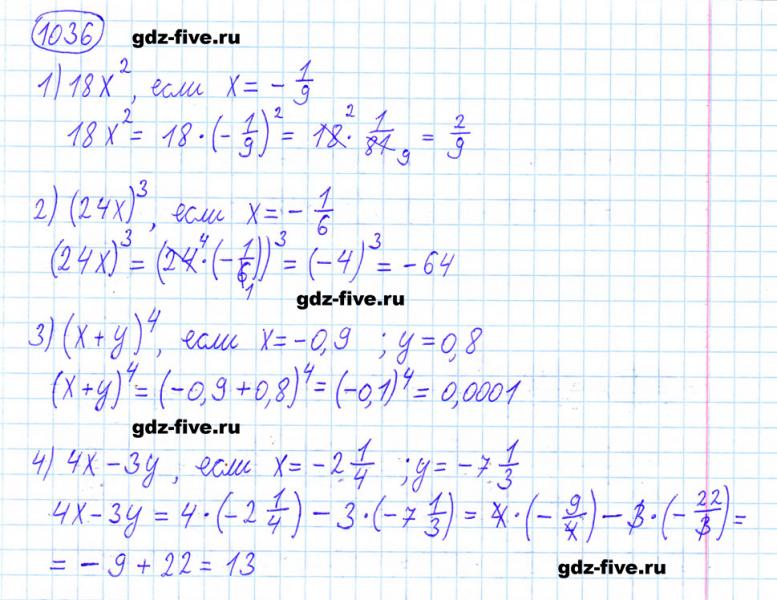 1036 gdz-five.ru
1) 18x², если x = - 1/9
18x² = 18 · (- 1/9)² = 18² · 1/81 9 = 2/9
2) (24x)³, если x = - 1/6
(24x)³ = (24⁴ · (- 1/6 1))³ = (-4)³ = -64
gdz-five.ru
3) (x + y)⁴, если x = -0,9 ; y = 0,8
(x+y)⁴ = (-0,9 + 0,8)⁴ = (-0,1)⁴ = 0,0001
gdz-five.ru
4) 4x - 3y, если x = -2 1/4 ; y = -7 1/3
4x - 3y = 4 · (-2 1/4) - 3 · (-7 1/3) = 4 · (- 9/4) - 3 · (- 22/3) =
= - 9 + 22 = 13
gdz-five.ru